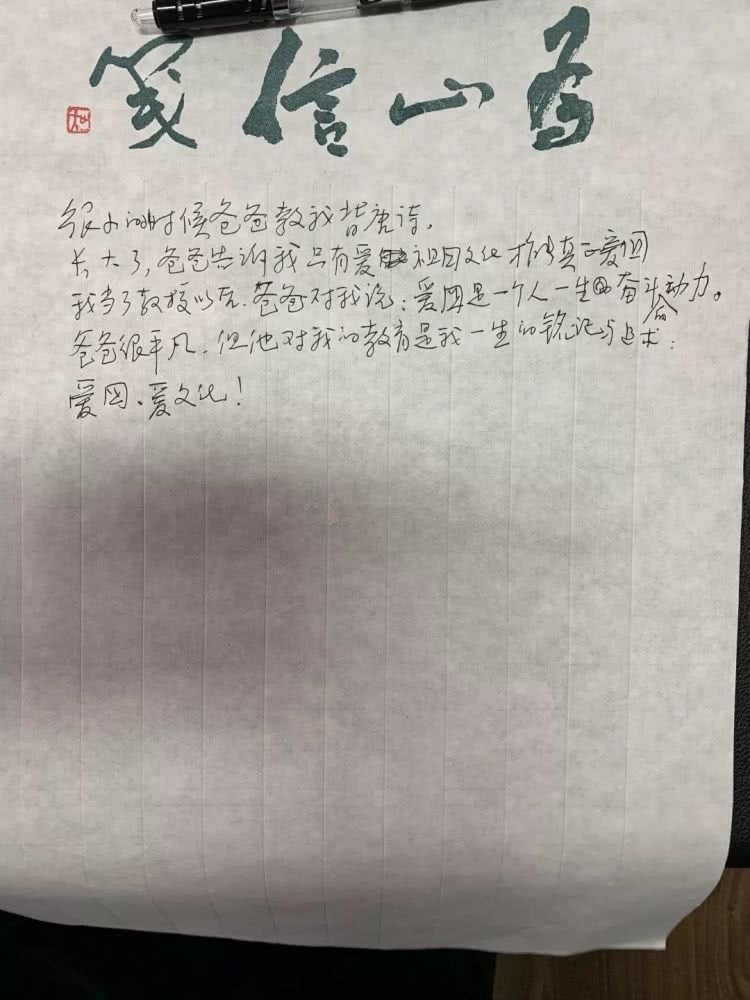 笺信山为
很小的时候爸爸教我背唐诗,
长大了,爸爸告诉我只有爱祖国文化才能真正爱国
我当了教授以后.爸爸对我说:爱国是一个人一生的奋斗动力。
爸爸很平凡.但他对我的教育是我一生的铭记与追求:
爱国、爱文化!